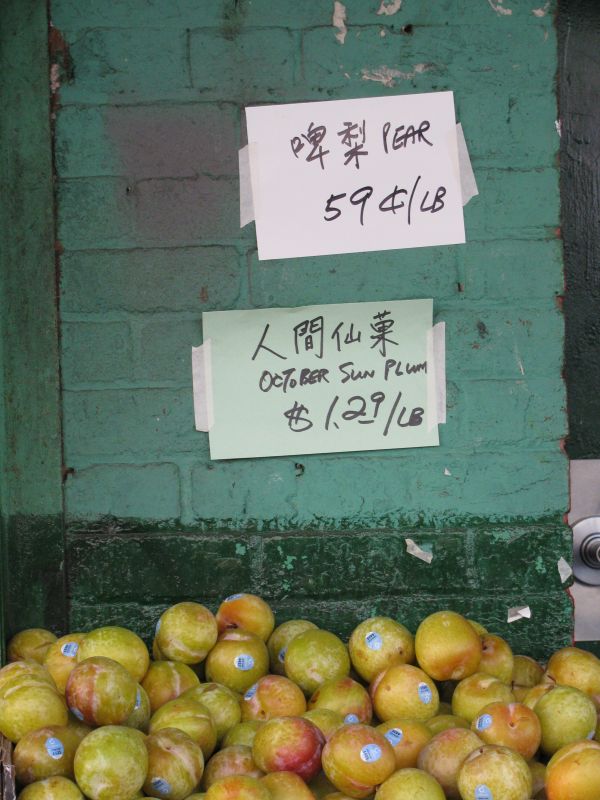 啤梨 PEAR
59¢/LB
人間仙菓
OCTOBER SUN PLUM
$1.29/LB